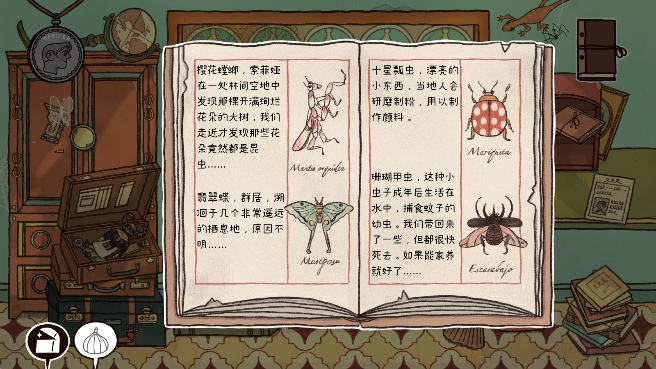 樱花螳螂，索菲娅
在一处林间空地中
发现那棵开满绚烂
花朵的大树，我们
走近才发现那些花
朵竟然都是昆
虫……
Mantis orquídea
翡翠蝶，群居，溯
洄于几个非常遥远
的栖息地，原因不
明……
Mariposa
十星瓢虫，漂亮的
小东西，当地人会
研磨制粉，用以制
作颜料。
Mariquita
珊瑚甲虫，这种小
虫子成年后生活在
水中，捕食蚊子的
幼虫。我们带回来
了一些，但都很快
死去。如果能家养
就好了……
Escarabajo